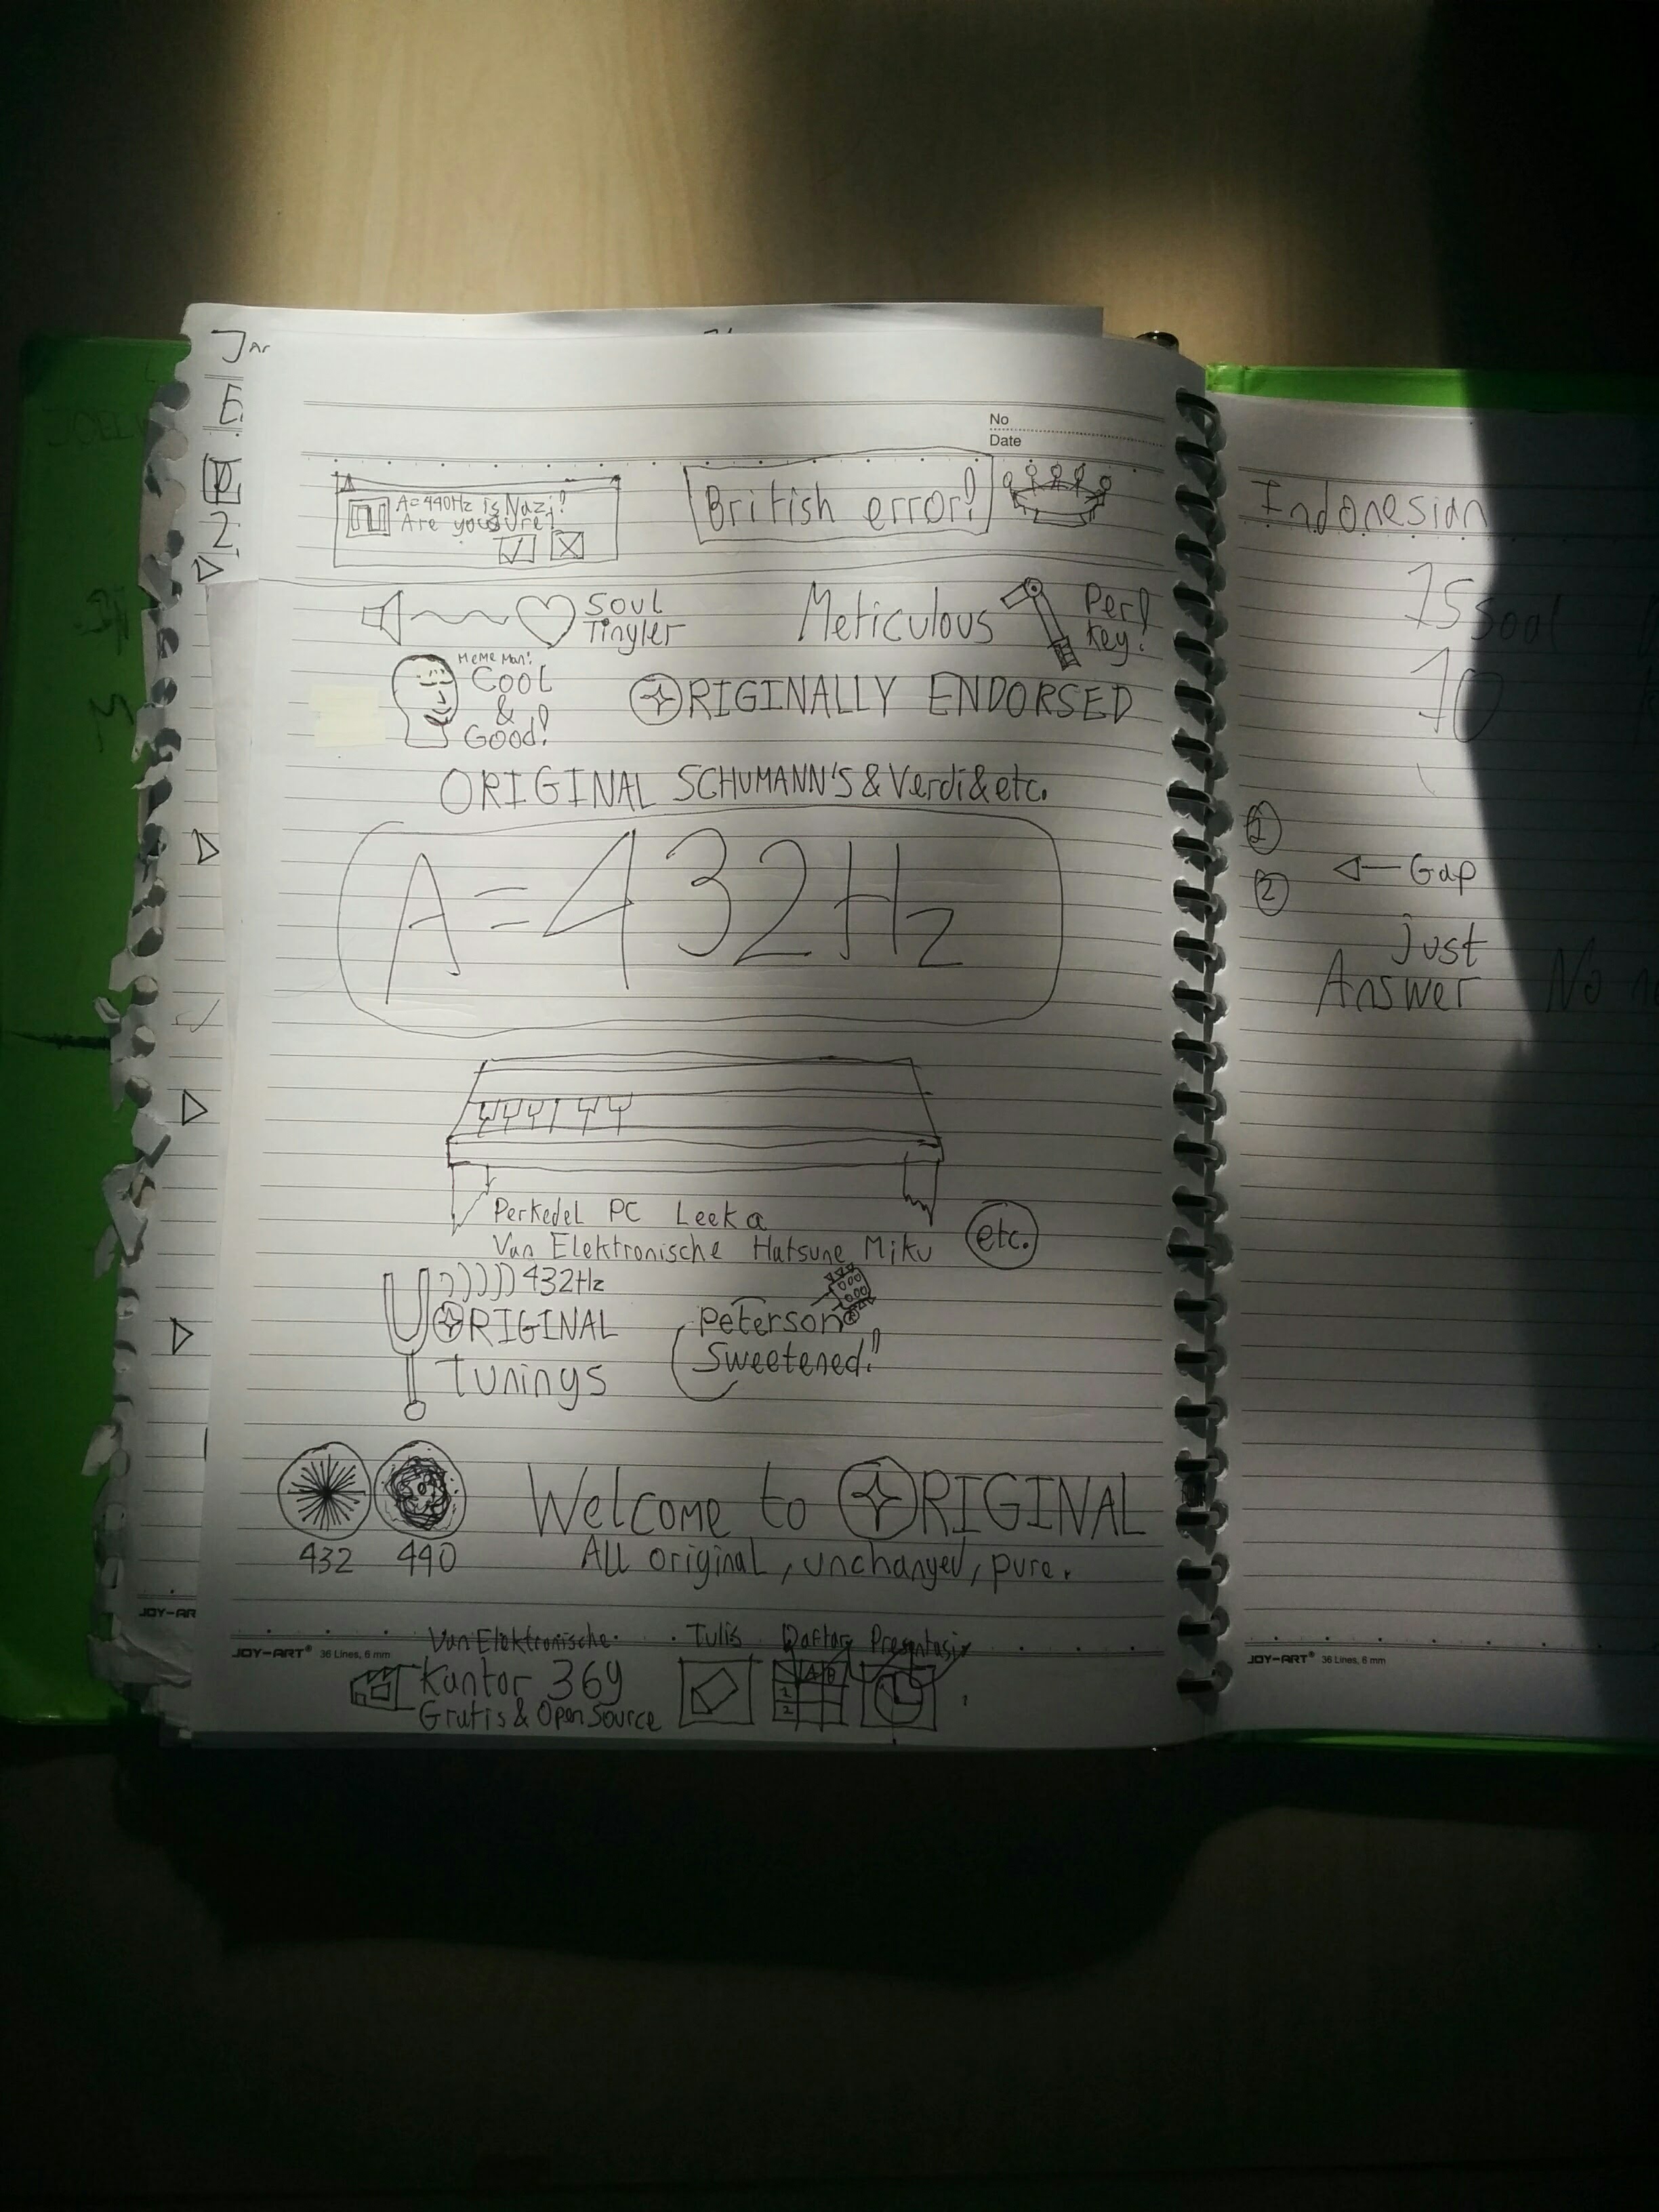 No
Date
A=440Hz is Nazi!
Are you sure?
British error!
Soul
Tingler
Meticulous
Per
Key!
Meme Man!
Cool
&
Good!
ORIGINALLY ENDORSED
ORIGINAL SCHUMANN'S & Verdi & etc.
A=432Hz
Perkedel PC Leeka
Van Elektronische Hatsune Miku
etc.
432Hz
ORIGINAL
Tunings
Peterson
Sweetened!
432 440
Welcome to ORIGINAL
All original, unchanged, pure.
JOY-ART® 36 Lines, 6 mm
Van Elektronische
Kantor 369
Gratis & Open Source
Tulis Daftar Presentasi
A B
1
2
Indonesian
75 soal
10
1
2
Gap
just
Answer No
JOY-ART® 36 Lines, 6 mm
JOY-AR
Jar
E
2